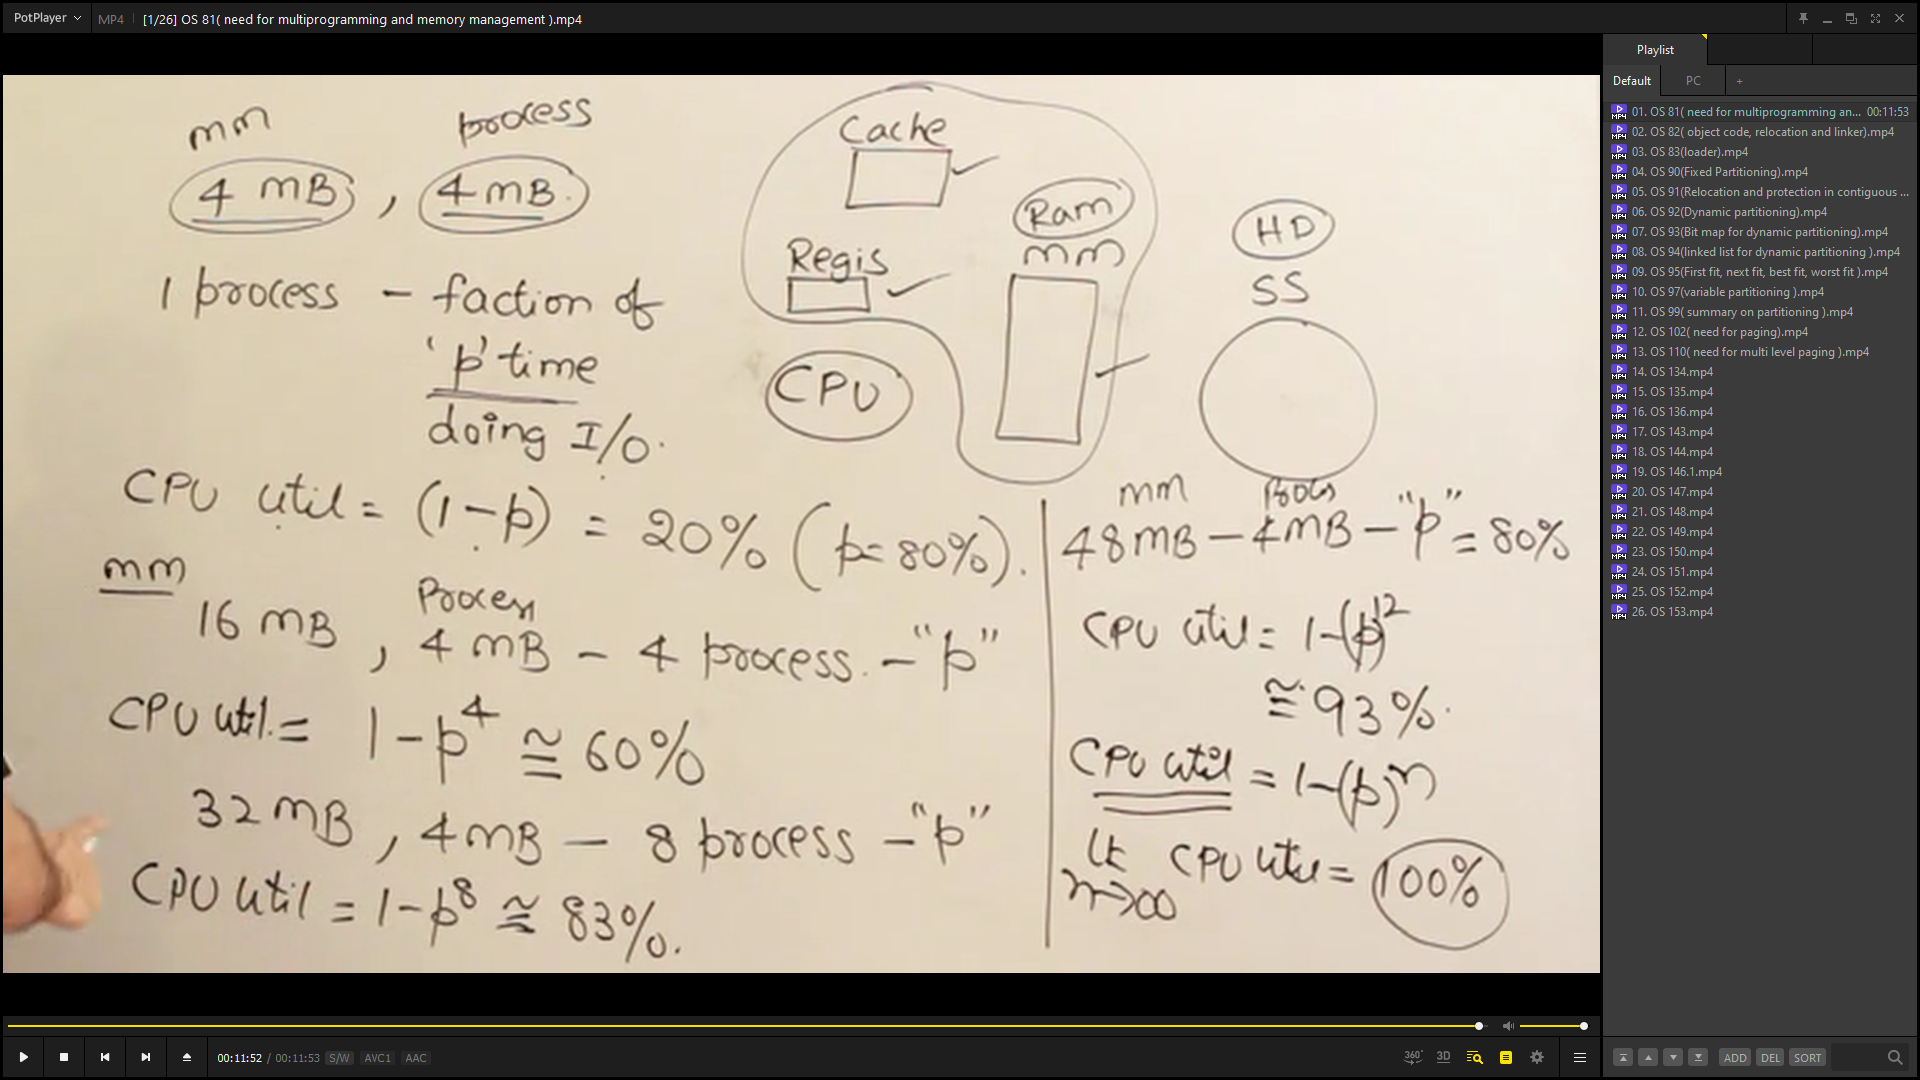 PotPlayer
MP4
[1/26] OS 81( need for multiprogramming and memory management ).mp4
mm
process
4 mB , 4 mB.
1 process - faction of
'p' time
doing I/O.
CPU util = (1-p) = 20% (p=80%).
mm
Process
16 mB , 4 mB - 4 process. - "p"
CPU util. = 1-p⁴ ≅ 60%
32 mB , 4 mB - 8 process - "p"
CPU util = 1-p⁸ ≅ 83%.
Cache
Regis
CPU
Ram
mm
HD
SS
mm
48 mB - 4 mB - "p" = 80%
CPU util = 1-(p)¹²
≅ 93%.
CPU util = 1-(p)ⁿ
lt CPU util = 100%
n→∞
Playlist
Default
PC
+
01. OS 81( need for multiprogramming an... 00:11:53
02. OS 82( object code, relocation and linker).mp4
03. OS 83(loader).mp4
04. OS 90(Fixed Partitioning).mp4
05. OS 91(Relocation and protection in contiguous ...
06. OS 92(Dynamic partitioning).mp4
07. OS 93(Bit map for dynamic partitioning).mp4
08. OS 94(linked list for dynamic partitioning ).mp4
09. OS 95(First fit, next fit, best fit, worst fit ).mp4
10. OS 97(variable partitioning ).mp4
11. OS 99( summary on partitioning ).mp4
12. OS 102( need for paging).mp4
13. OS 110( need for multi level paging ).mp4
14. OS 134.mp4
15. OS 135.mp4
16. OS 136.mp4
17. OS 143.mp4
18. OS 144.mp4
19. OS 146.1.mp4
20. OS 147.mp4
21. OS 148.mp4
22. OS 149.mp4
23. OS 150.mp4
24. OS 151.mp4
25. OS 152.mp4
26. OS 153.mp4
00:11:52 / 00:11:53 S/W AVC1 AAC
360°
3D
ADD
DEL
SORT